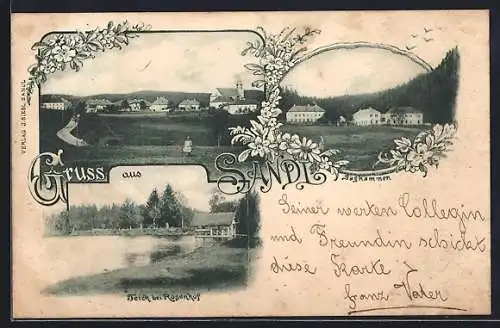 VERLAG J. SIESL SANDL
Gruss aus SANDL
Jagkammen
Teich bei Rosenhof
Seiner werten Collegin
und Freundin schickt
diese Karte
Franz Vater